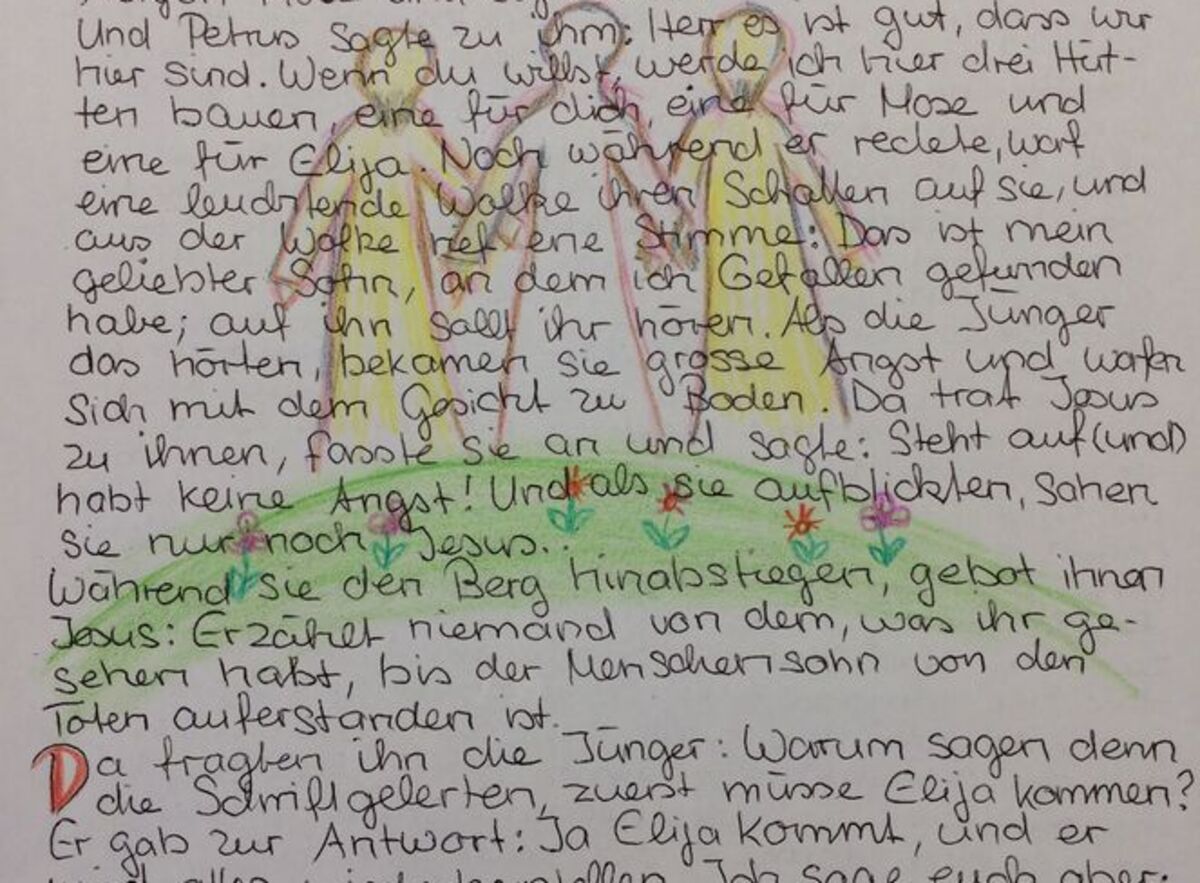 Und Petrus sagte zu ihm: Herr es ist gut, dass wir
hier sind. Wenn du willst, werde ich hier drei Hüt-
ten bauen, eine für dich, eine für Mose und
eine für Elija. Noch während er redete, warf
eine leuchtende Wolke ihren Schatten auf sie, und
aus der Wolke rief eine Stimme: Das ist mein
geliebter Sohn, an dem ich Gefallen gefunden
habe; auf ihn sollt ihr hören. Als die Jünger
das hörten, bekamen sie grosse Angst und warfen
sich mit dem Gesicht zu Boden. Da trat Jesus
zu ihnen, fasste sie an und sagte: Steht auf (und)
habt keine Angst! Und als sie aufblickten, sahen
sie nur noch Jesus.
Während sie den Berg hinabstiegen, gebot ihnen
Jesus: Erzählt niemand von dem, was ihr ge-
sehen habt, bis der Menschensohn von den
Toten auferstanden ist.
Da fragten ihn die Jünger: Warum sagen denn
die Schriftgelerten, zuerst müsse Elija kommen?
Er gab zur Antwort: Ja Elija kommt, und er
Ich sage euch aber: